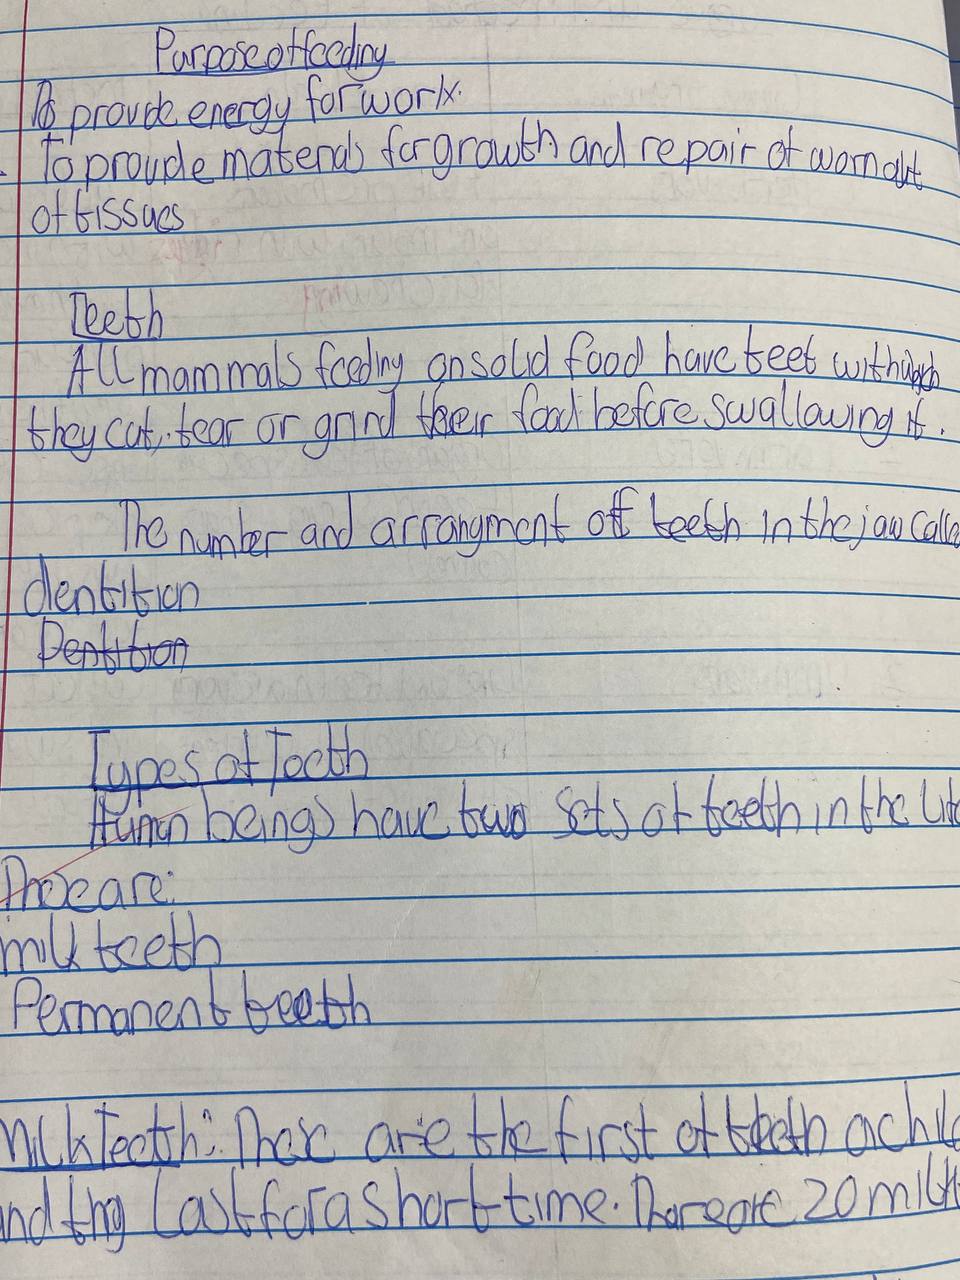 Purpose of feeding
To provide energy for work.
To provide materials for growth and repair of wornout
of tissues
Teeth
All mammals feeding on solid food have teet with which
they cut, tear or grind their food before swallowing it.
The number and arrangment off teeth in the jaw calle
dentition
Dentition
Types of Teeth
Human beings have two sets of teeth in the life
These are:
milk teeth
Permanent teeth
Milk Teeth: These are the first of teeth a chil
and they last for a short time. There are 20 milk